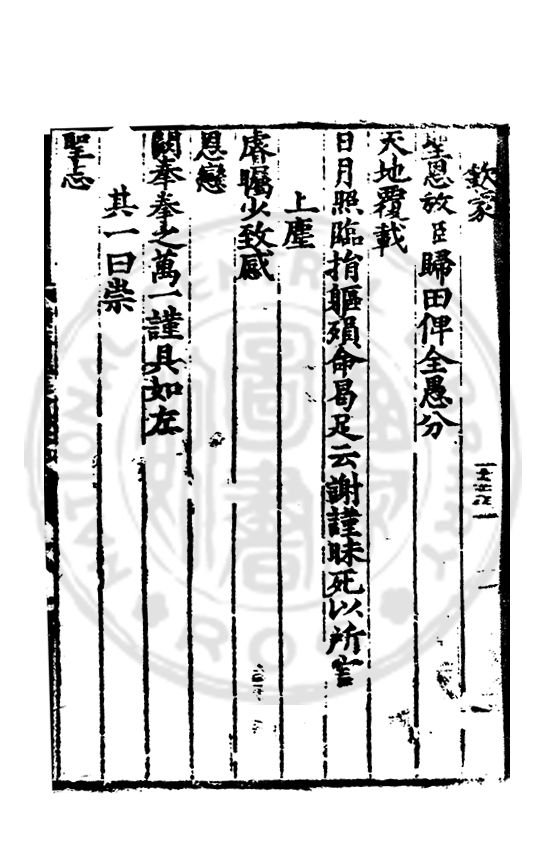 欽蒙
聖恩放臣歸田俾全愚分
天地覆載
日月照臨捐軀殞命曷足云謝謹昧死以所言
上塵
睿矚少致感
恩戀
闕拳拳之萬一謹具如左
其一曰崇
聖志